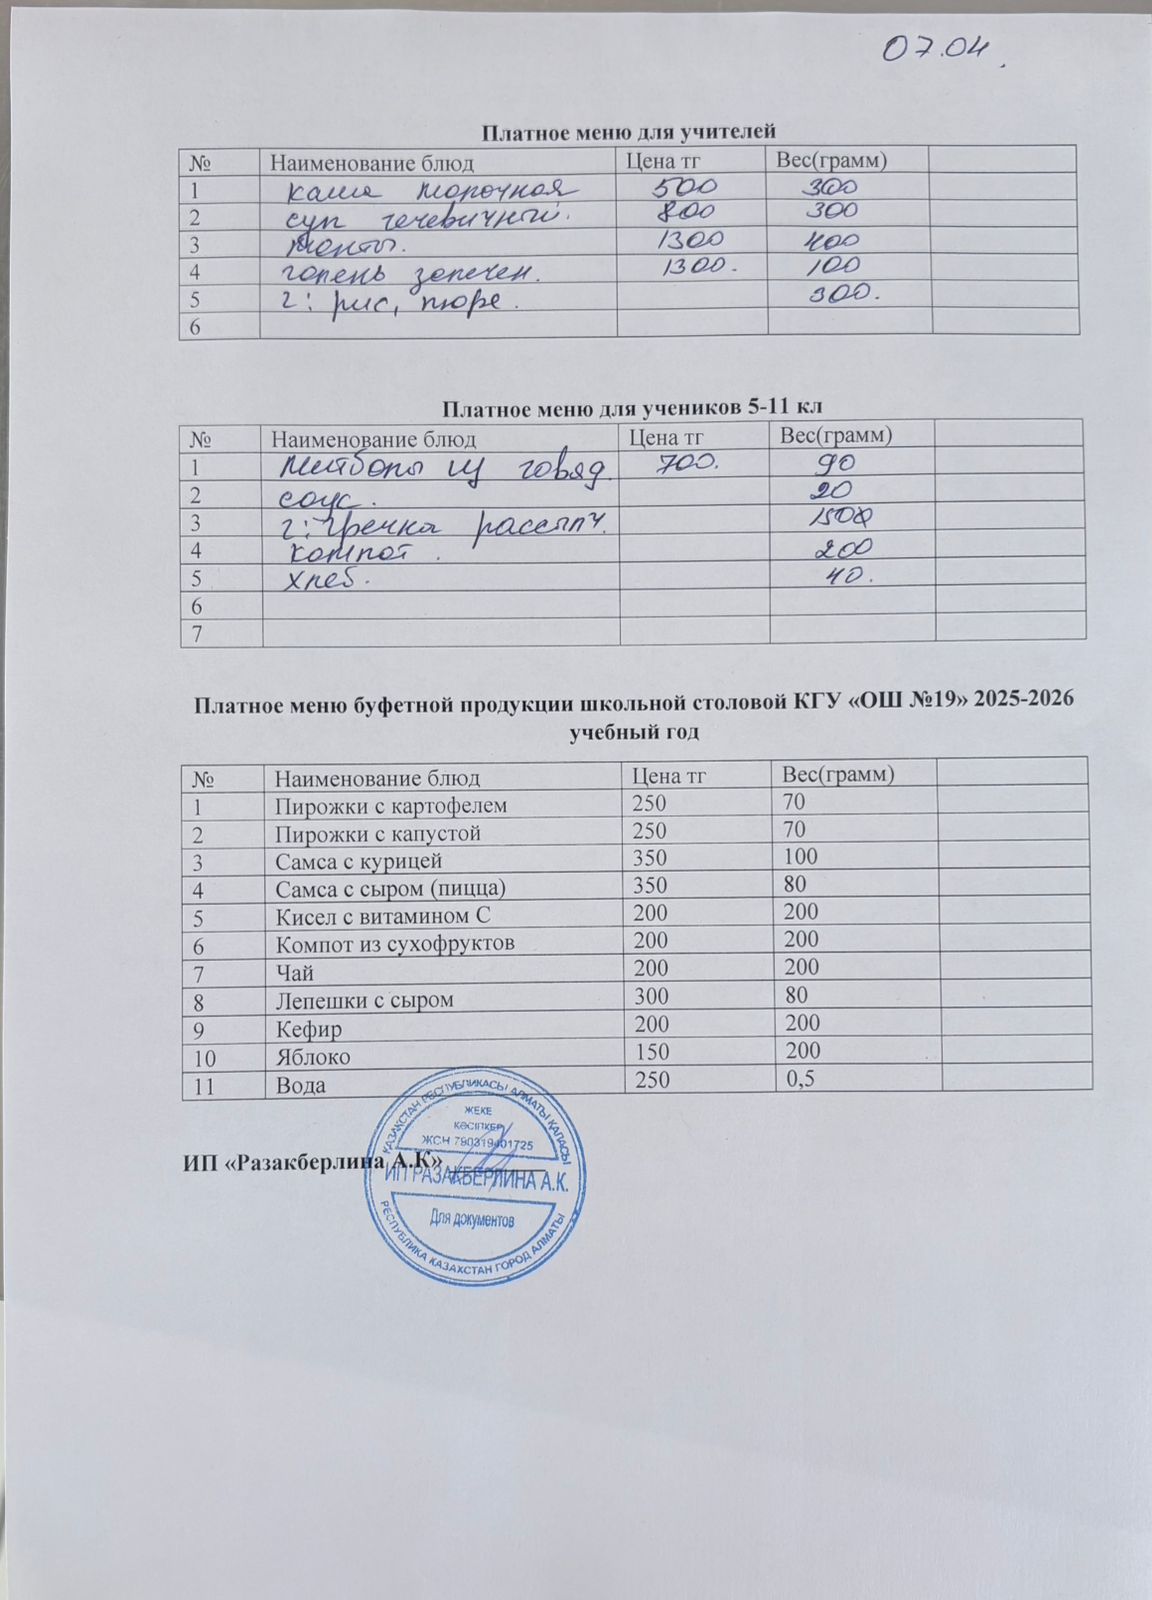 07.04
Платное меню для учителей
№ Наименование блюд Цена тг Вес(грамм)
1 каша молочная 500 300
2 суп чечевичный. 800 300
3 манты. 1300 400
4 голень запечен. 1300. 100
5 г: рис, пюре. 300.
6
Платное меню для учеников 5-11 кл
№ Наименование блюд Цена тг Вес(грамм)
1 Митболы из говяд. 700. 90
2 соус. 20
3 г: гречка рассыпч. 150
4 компот. 200
5 хлеб. 40.
6
7
Платное меню буфетной продукции школьной столовой КГУ «ОШ №19» 2025-2026
учебный год
№ Наименование блюд Цена тг Вес(грамм)
1 Пирожки с картофелем 250 70
2 Пирожки с капустой 250 70
3 Самса с курицей 350 100
4 Самса с сыром (пицца) 350 80
5 Кисел с витамином С 200 200
6 Компот из сухофруктов 200 200
7 Чай 200 200
8 Лепешки с сыром 300 80
9 Кефир 200 200
10 Яблоко 150 200
11 Вода 250 0,5
ИП «Разакберлина А.К»
ҚАЗАҚСТАН РЕСПУБЛИКАСЫ АЛМАТЫ ҚАЛАСЫ
ЖЕКЕ
КӘСІПКЕР
ЖСН 790319401725
ИП РАЗАКБЕРЛИНА А.К.
Для документов
РЕСПУБЛИКА КАЗАХСТАН ГОРОД АЛМАТЫ